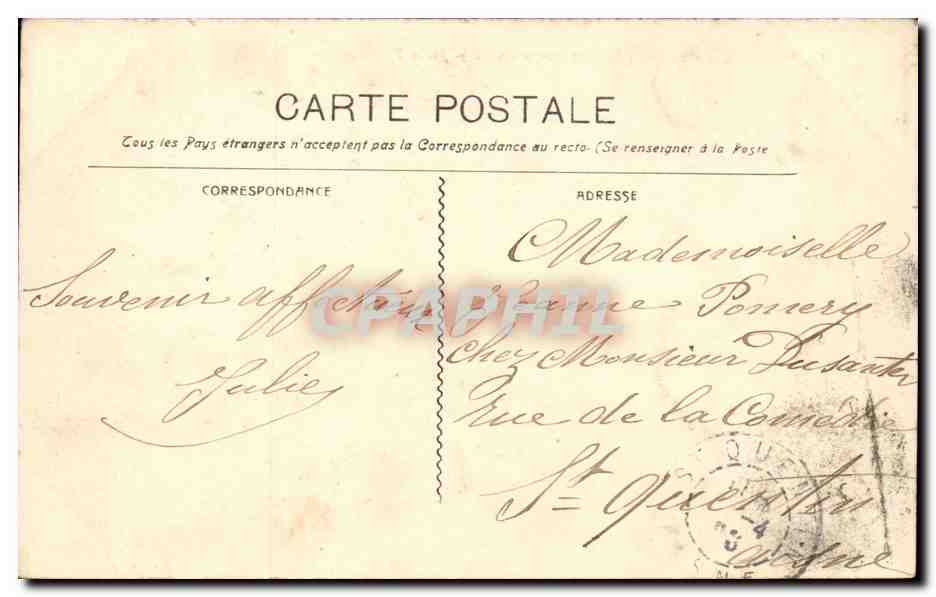 CARTE POSTALE
Tous les Pays étrangers n'acceptent pas la Correspondance au recto. (Se renseigner à la Poste
CORRESPONDANCE
ADRESSE
Souvenir affectueux
Julie
Mademoiselle
Jeanne Pomery
chez Monsieur Dusanter
Rue de la Comédie
St Quentin
Aisne
CPAPHIL
QUEN